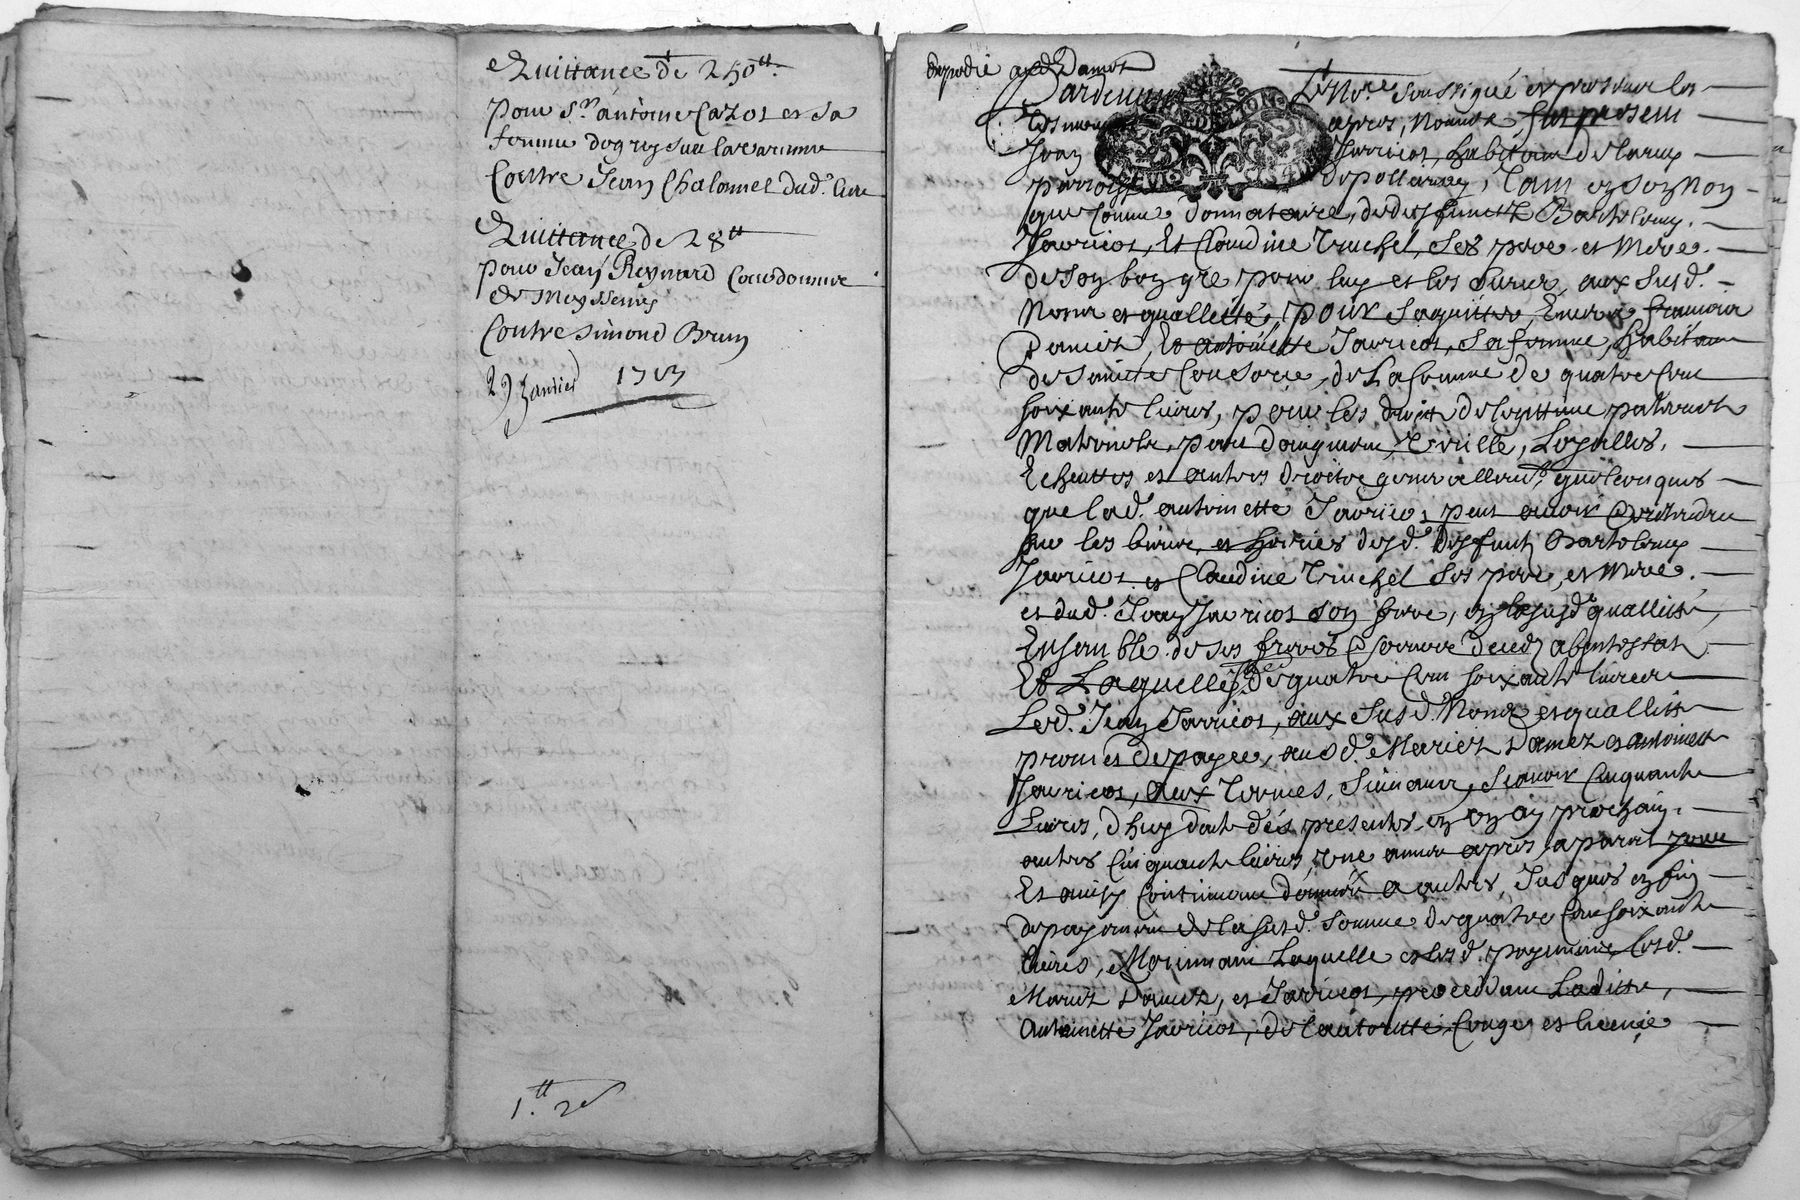 Quittance de 250tt
pour Sr. antoine Cazot et sa
femme
Contre Jean Chalamel dud. lieu
Quittance de 28tt
pour Jean Reynard Cordonnier
de Meyssenis
Contre simond Brun
29 Janvier 1703
1.tt 2s
Expedié aud Damez
Pardevant Le Nore. soussigné et presence les
tesmoins apres, Nommés fut present
Jean Jarricot, habitant de
parroisse de pollarey, Tant en son Non
que Comme donnataire, de deffunctz Barthelemy.
Jarricot, Et Claudine Truchel, Ses pere et Mere.
de son bon gré pour luy et les siens, aux susd.
Noms et quallitté, pour
Damez, Et antoinette Jarricot, Sa femme, habitant
de sainctte Consorce, de La somme de quatre Cent
soixante livres, pour les droitt de legittime paternel
Maternelle, part d'augment, Loyalles,
Echeuttes et autres droitz generallemt. quelconques
que lad. antoinette Jarricot, peut avoir & pretendre
sur les biens, et hoiries desd. deffuntz Barthelemy
Jarricot et Claudine Truchel Ses pere, et Mere.
et dud. Jean Jarricot son frere, en lasusd. quallitté,
Ensemble de ses freres & soeurs decedz abintestat
Et Laquelle somme de quatre Cent soixante livres
Led. Jean Jarricot, aux Susd. Noms et quallittés
promet de payer, ausd. Mariez Damez & antoinette
Jarricot, aux Termes, Suivants, scavoir Cinquante
Livres, d'huy datte des presentes en un an prochain,
autres Cinquante livres, une annee apres, a pareil jour
Et ainsy Continuant d'année a autres, Jusques en fin
de payement de la susd. somme de quatre Cent soixante
livres, Moiennant Laquelle et lesd. payement, lesd.
Mariez Damez, et Jarricot, procedant Laditte,
Antoinette Jarricot, de l'autoritté, Conge, et licence